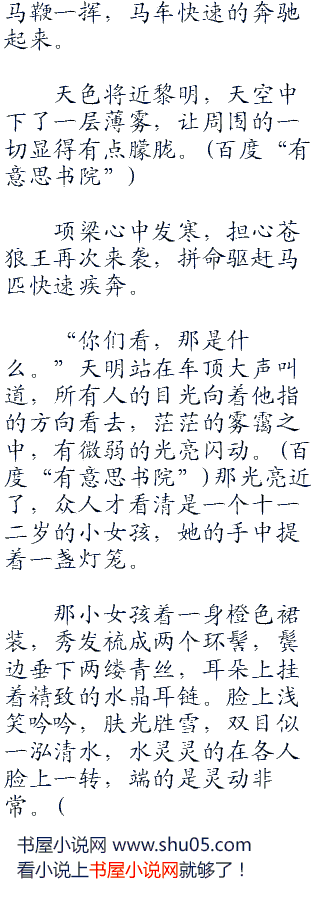 马鞭一挥，马车快速的奔驰
起来。
天色将近黎明，天空中
下了一层薄雾，让周围的一
切显得有点朦胧。(百度“有
意思书院”)
项梁心中发寒，担心苍
狼王再次来袭，拼命驱赶马
匹快速疾奔。
“你们看，那是什
么。”天明站在车顶大声叫
道，所有人的目光向着他指
的方向看去，茫茫的雾霭之
中，有微弱的光亮闪动。(百
度“有意思书院”)那光亮近
了，众人才看清是一个十一
二岁的小女孩，她的手中提
着一盏灯笼。
那小女孩着一身橙色裙
装，秀发梳成两个环髻，鬓
边垂下两缕青丝，耳朵上挂
着精致的水晶耳链。脸上浅
笑吟吟，肤光胜雪，双目似
一泓清水，水灵灵的在各人
脸上一转，端的是灵动非
常。(
书屋小说网 www.shu05.com
看小说上书屋小说网就够了！